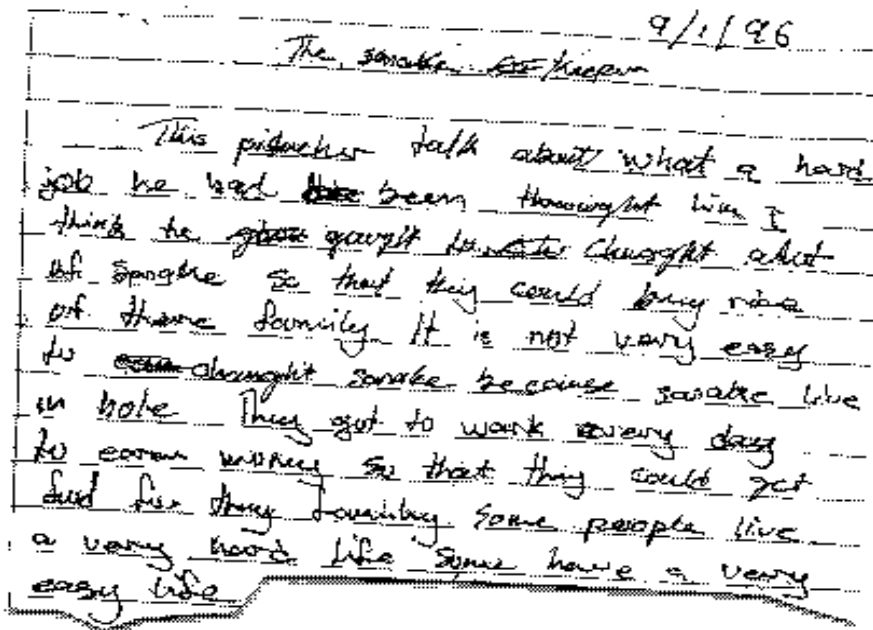 9/1/96
The snake
This pictucher talk about what a hard
job he had been thought him I
think he to chunght abut
of snagke so that thiy could buy rice
of there family It is not very easy
to chunght snake because snake live
in hole They got to work every day
to earn money so that thiy could get
fud for thiy family Some people live
a very hard life Some have a very
easy life